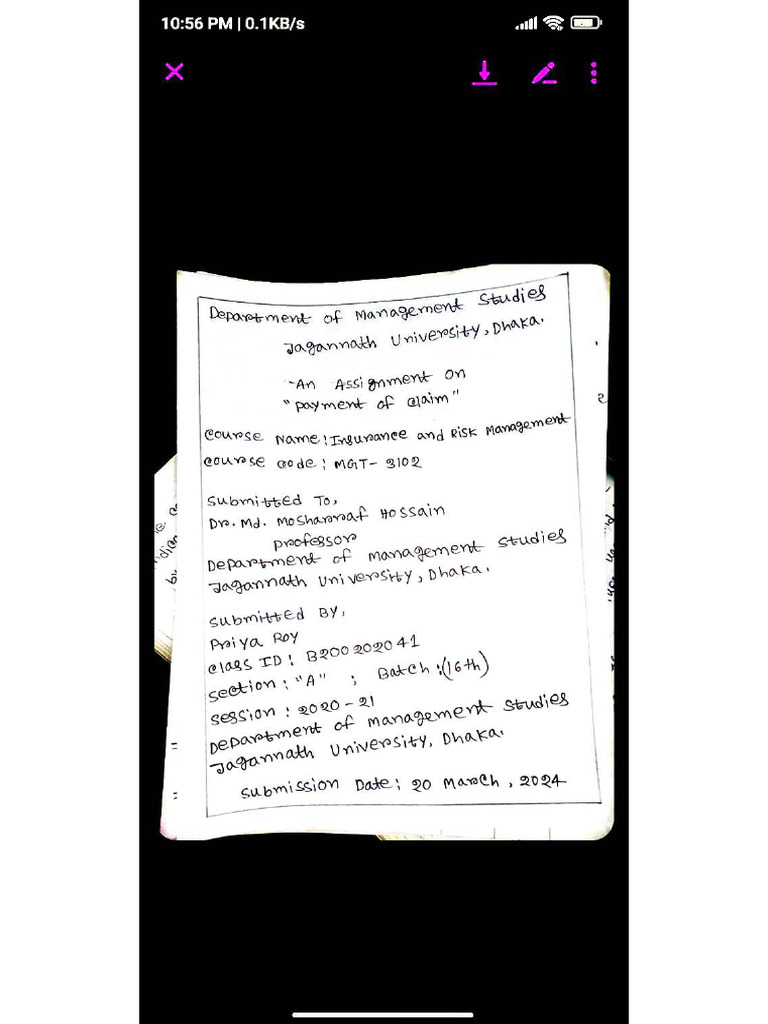 10:56 PM | 0.1KB/s
Department of Management Studies
Jagannath University, Dhaka.
An Assignment on
"Payment of Claim"
Course Name: Insurance and Risk Management
Course Code: MGT-3102
Submitted To,
Dr. Md. Mosharraf Hossain
Professor
Department of Management Studies
Jagannath University, Dhaka.
Submitted By,
Priya Roy
Class ID: B200202041
Section: "A" ; Batch:(16th)
Session: 2020-21
Department of Management Studies
Jagannath University, Dhaka.
Submission Date: 20 March, 2024